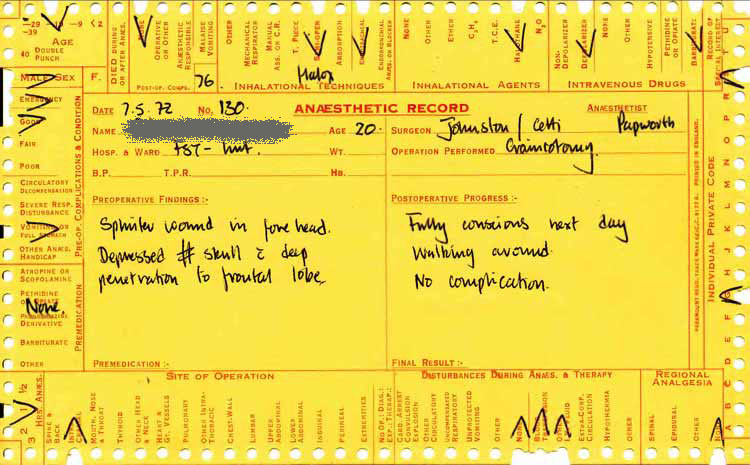 -29 -19 -9 <2
-39
40
AGE
DOUBLE
PUNCH
DIED DURING
OR AFTER ANÆS.
NONE
OPERATIVE
OR OTHER
ANÆSTHETIC
RESPONSIBLE
MALAISE
VOMITING
OTHER
MECHANICAL
RESPIRATOR
MANUAL
ASS. OR C.R.
T. PIECE
ABSORPTION
NONE
OTHER
C₂H₄
T.C.E.
HALOTHANE
N₂O
NON-
DEPOLARIZER
DEPOLARIZER
OTHER
HYPOTENSIVE
PETHIDINE
OR OPIATE
BARBITURATE
RECORD OF
SPECIAL INTEREST
MALE SEX F.
POST-OP. COMPS.
76.
Halox
INHALATIONAL TECHNIQUES
INHALATIONAL AGENTS
INTRAVENOUS DRUGS
DATE 7.5.72 NO. 130.
ANÆSTHETIC RECORD
ANÆSTHETIST
NAME AGE 20.
SURGEON Johnston / Cetti Papworth
HOSP. & WARD FST- Unit. WT.
OPERATION PERFORMED Craniotomy.
B.P. T.P.R. HB.
PREOPERATIVE FINDINGS :-
Splinter wound in forehead.
Depressed # skull c̄ deep
penetration to frontal lobe.
PREMEDICATION :-
POSTOPERATIVE PROGRESS :-
Fully conscious next day
Walking around.
No complication.
FINAL RESULT :-
EMERGENCY
GOOD
FAIR
POOR
CIRCULATORY
DECOMPENSATION
SEVERE RESP.
DISTURBANCE
VOMITING OR
FULL STOMACH
OTHER ANÆS.
HANDICAP
PRE-OP. COMPLICATIONS & CONDITION
ATROPINE OR
SCOPOLAMINE
PETHIDINE
OR OPIATE
None.
DERIVATIVE
BARBITURATE
OTHER
PREMEDICATION
PRINTED IN ENGLAND.
INDIVIDUAL PRIVATE CODE
SITE OF OPERATION
DISTURBANCES DURING ANÆS. & THERAPY
REGIONAL
ANALGESIA
3 2 1 ½
HRS. ANÆS.
SPINE &
BACK
MOUTH, NOSE
& THROAT
THYROID
OTHER HEAD
& NECK
HEART &
GT. VESSELS
PULMONARY
OTHER INTRA-
THORACIC
CHEST-WALL
LUMBAR
UPPER
ABDOMINAL
LOWER
ABDOMINAL
INGUINAL
PERINEAL
EXTREMITIES
NO OP.: DIAG.:
EXP.: THERAP.:
CARD. ARREST
CONVULSION
EXPLOSION
OTHER
CIRCULATORY
UNCOMPENSATED
RESPIRATORY
UNPROTECTED
VOMITING
OTHER
NONE
EXTRA-CORP.
CIRCULATION
HYPOTHERMIA
OTHER
SPINAL
EPIDURAL
OTHER